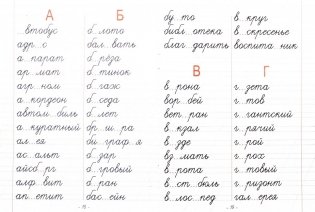 А
. втобус
адр . с
а . парат
ар . мат
агр . ном
а . кордеон
автом . биль
а . куратный
ал . ея
ас . альт
айсб . рг
алф . вит
ап . етит
Б
б . лото
бал . вать
б . рёза
б . тинок
б . гаж
б . седа
б . лет
бр . ш . ра
би . граф . я
б . зар
б . гровый
б . ран
бас . ейн
бу . то
библ . отека
благ . дарить
В
в . рона
вор . бей
вет . ран
в . кзал
в . зде
вз . мать
в . рота
в . ст . бюль
в . лос . пед
в . круг
в . скресенье
воспита . ник
Г
г . зета
г . тов
г . гантский
г . рячий
г . рой
г . рох
г . товый
г . ризонт
гал . ерея